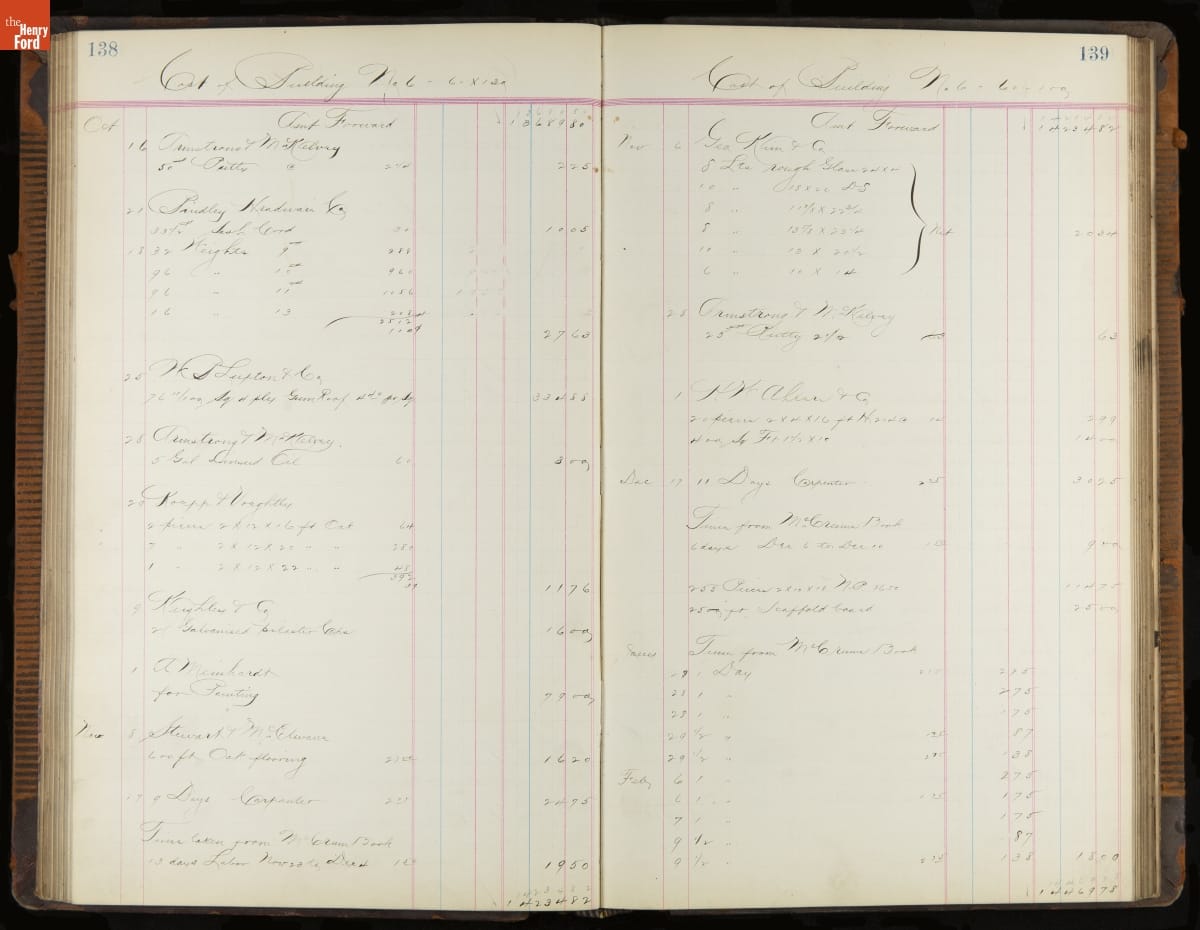 the Henry Ford
138
Cost of Building No 6 - 60 x 100
Oct Amt Forward 13689 80
16 Armstrong & McKelvy
50# Putty @ 2 1/4 2 25
21 Bindley Hardware Co
33 1/2 # Sash Cord 30 10 05
18 32 Weights 9# 288
96 " 10# 960
96 " 11# 1056
16 " 13 208
2512
110 27 63
25
76 Sq 4 ply Roof 4 40 per Sq 334 88
28 Armstrong & McKelvy
5 Gal Linseed Oil 60 3 00
2 pieces 2 x 12 x 16 ft Oak 64
7 " 2 x 12 x 20 " " 280
1 " 2 x 12 x 22 " " 48
392
11 76
9 Keighley & Co
Galvanized 16 00
1 A Meinhardt
for Painting 79 00
Nov 8 Stewart & McElwain
600 ft Oak flooring 27 00 16 20
17 9 Days Carpenter 2 75 24 75
Time taken from McCrum Book
13 days Labor Nov 23 to Dec 4 1 50 19 50
14234 82
139
Cost of Building No 6 - 60 x 100
Amt Forward 14234 82
Nov 6 Geo Kim & Co
8 Lts rough Glass
10 " 15 x 22 DS
8 "
8 "
10 " 13 x 20 1/2
6 " 10 x 14
Net 20 34
28 Armstrong & McKelvy
25# Putty 2 1/2 63
1
20 pieces 2 x 4 x 16 ft 2 99
400 Sq Ft 14 00
Dec 17 11 Days Carpenter 2 75 30 25
Time from McCrum Book
6 days Dec 6 to Dec 10 1 50 9 00
255 Pieces 114 75
2500 ft Scaffold board 25 00
Time from McCrum Book
29 1 Day 2 75 2 75
28 1 " 2 75
28 1 " 1 75
29 1/2 " 1 75 87
29 1/2 " 2 75 1 38
Feby 6 1 " 2 75
6 1 " 1 75 1 75
7 1 " 1 75
9 1/2 " 87
9 1/2 " 2 75 1 38 18 00
14469 78